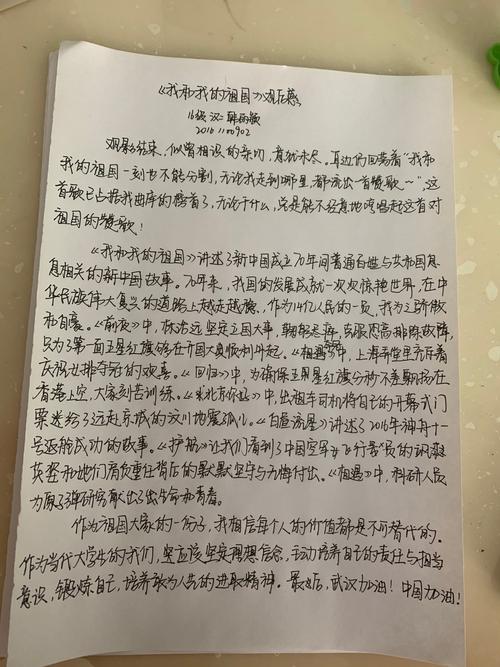 《我和我的祖国》观后感
16级 汉二 韩
2016110902
观影结束，似曾相识的亲切，意犹未尽。耳边仍回荡着“我和
我的祖国一刻也不能分割，无论我走到哪里，都流出一首赞歌～”，这
首歌已占据我曲库的榜首了，无论干什么，总是能不经意地哼唱起这首对
祖国的赞歌！
《我和我的祖国》讲述了新中国成立70年间普通百姓与共和国息
息相关的新中国故事。70年来，我国的发展成就一次次惊艳世界，在中
华民族伟大复兴的道路上越走越稳，作为14亿人民的一员，我为之骄傲
和自豪。《前夜》中，林治远坚定立国大事，克服恐高排除故障，
只为了第一面五星红旗能够在开国大典顺利升起。《夺冠》中，上海弄堂里充斥着
庆祝女排夺冠的欢喜。《回归》中，为确保五星红旗分秒不差飘扬在
香港上空，大家刻苦训练。《北京你好》中，出租车司机将自己的开幕式门
票送给了远赴京城的汶川地震孤儿。《白昼流星》讲述了2016年神舟十一
号返航成功的故事。《护航》让我们看到了中国空军女飞行员的飒爽
英姿和她们肩负重任背后的默默坚守与无悔付出。《相遇》中，科研人员
为原子弹研究献出了出生命和青春。
作为祖国大家的一份子，我相信每个人的价值都是不可替代的。
作为当代大学生的我们，更应该坚定理想信念，主动培养自己的责任与担当
意识，锻炼自己，培养敢为人先的进取精神。最后，武汉加油！中国加油！